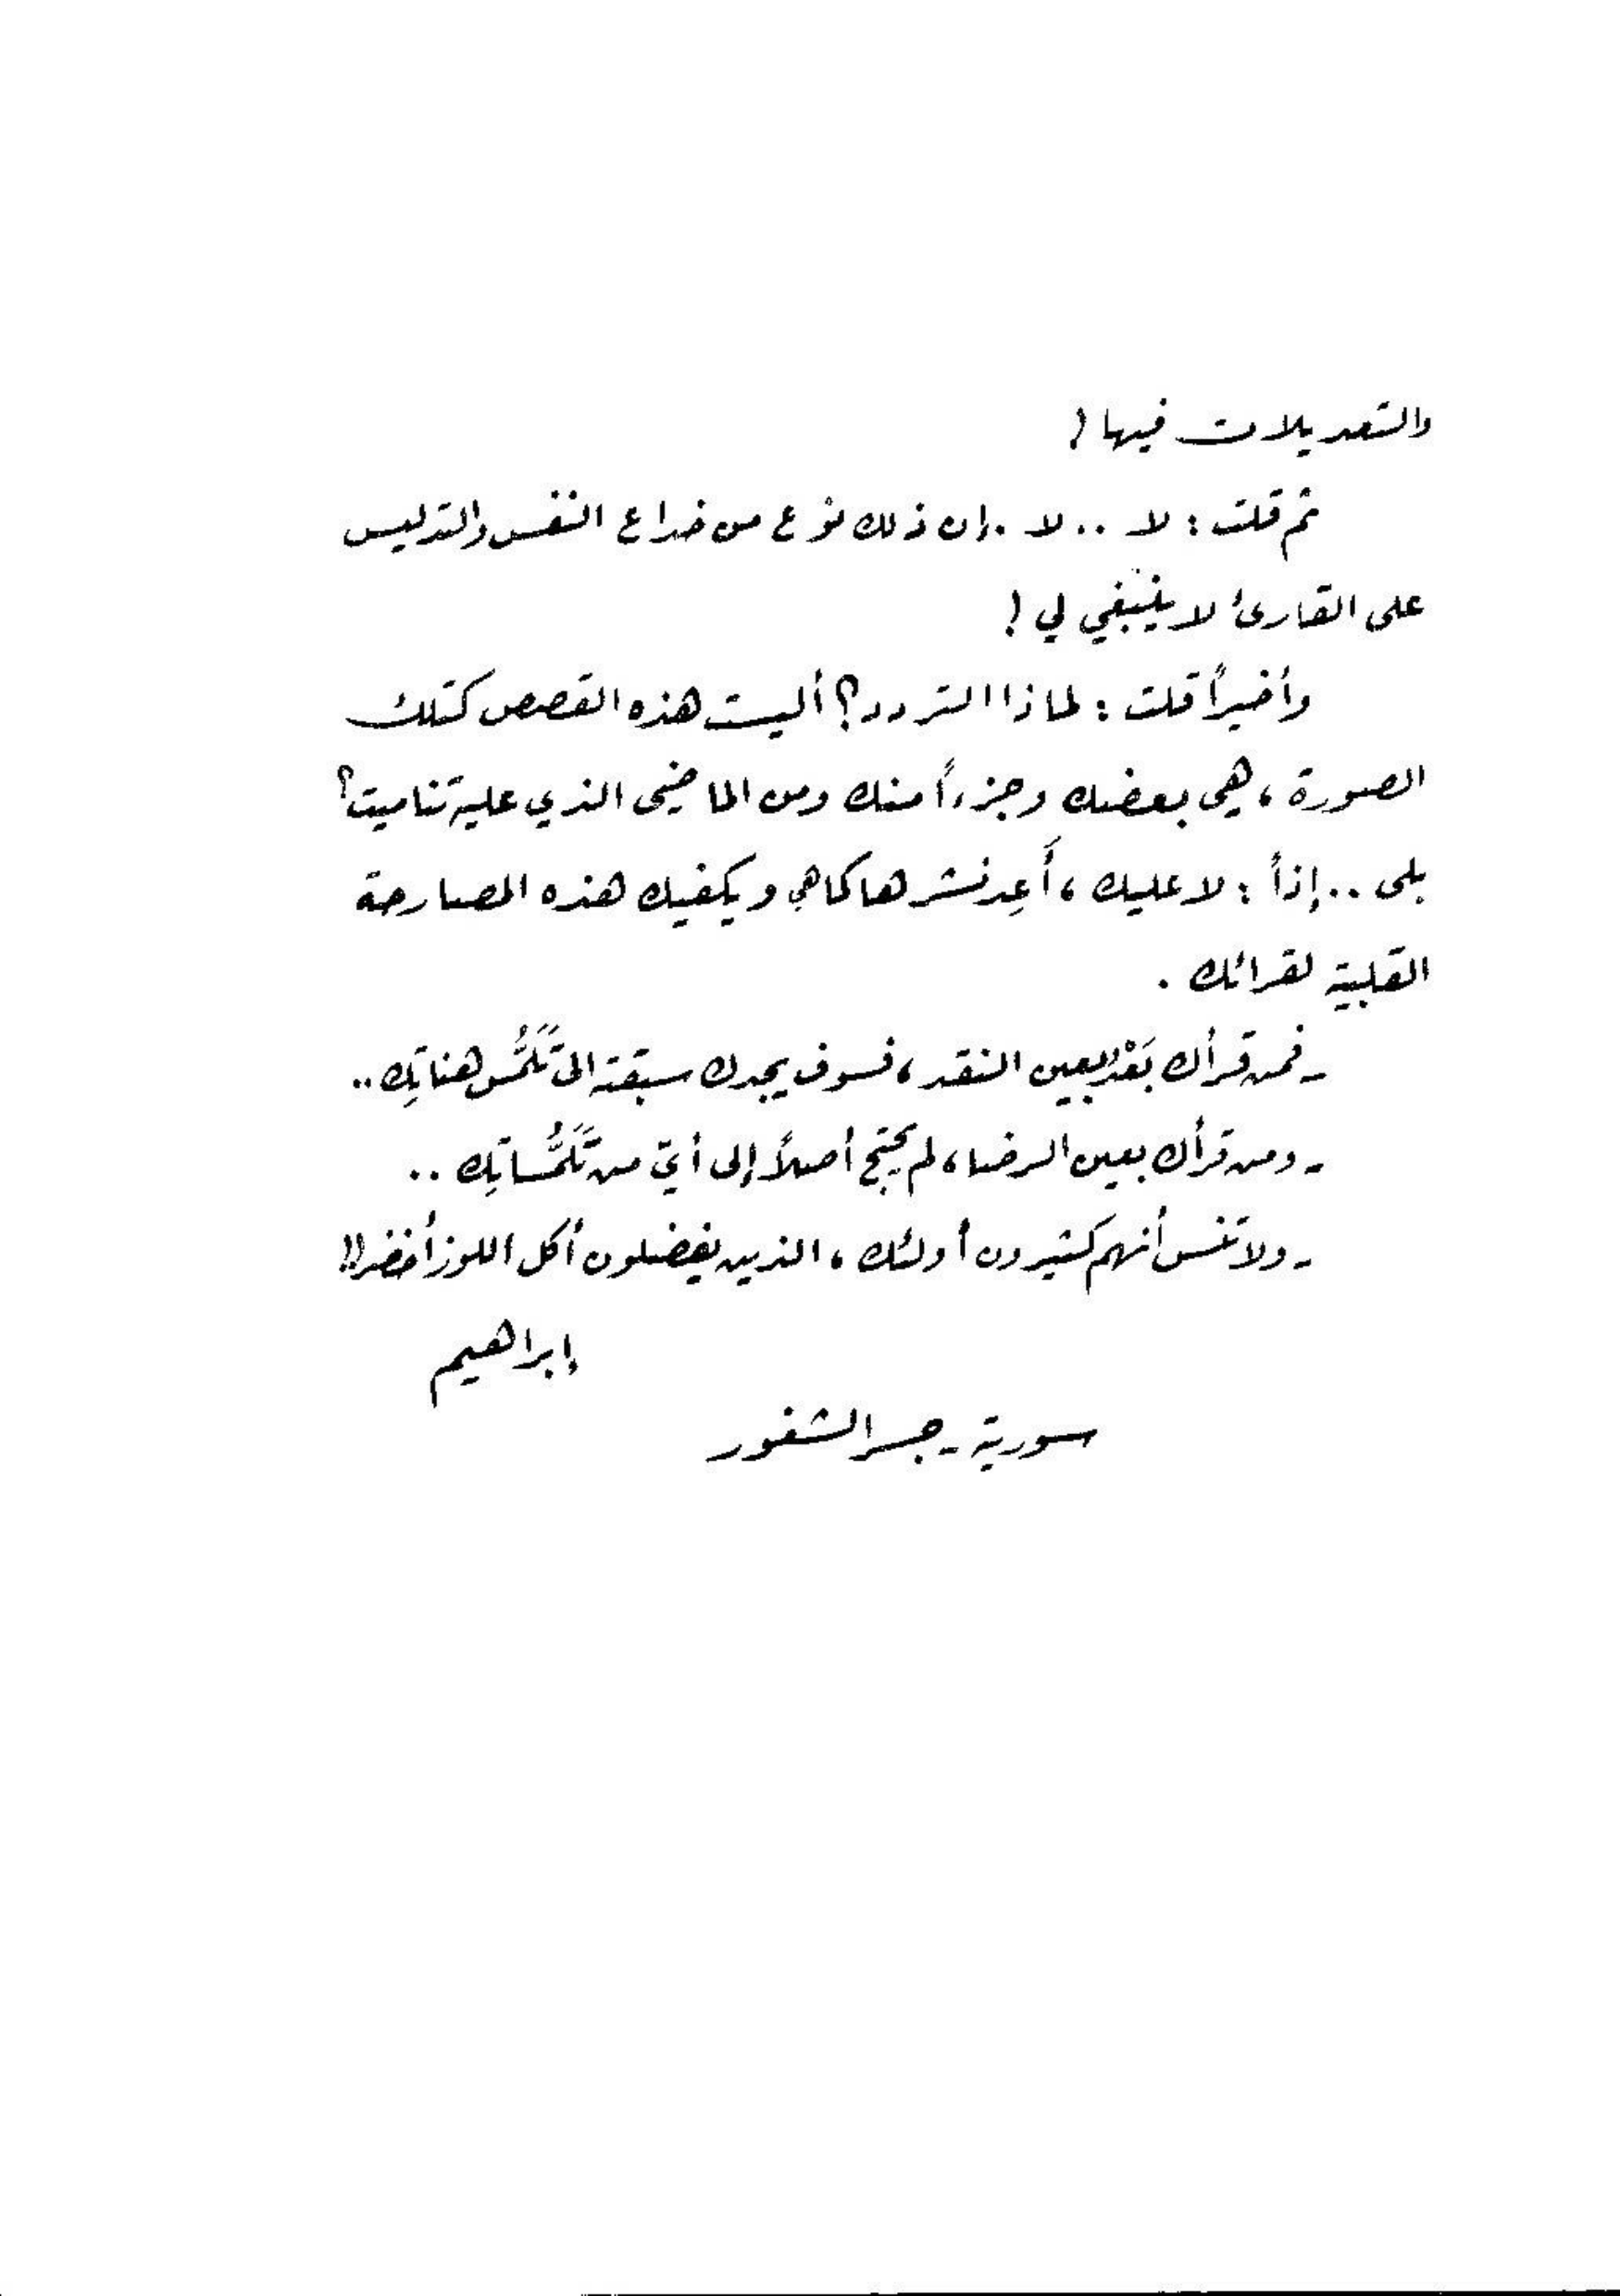 والتعديلات فيها !
ثم قلت : لا .. لا . إن ذلك نوع من خداع النفس والتدليس
على القارئ لا ينبغي لي !
وأخيراً قلت : لماذا التردد؟ أليست هذه القصص كتلك
الصورة ، هي بعضك وجزءاً منك ومن الماضي الذي عليه تناميت؟
بلى .. إذاً : لا عليك ، أَعِد نشرها كما هي ويكفيك هذه المصارحة
القلبية لقرائك .
- فمن قرأك بَعْدُ بعين النقد ، فسوف يجدك سبقته الى تَلَمُّس هناتِك ..
- ومن قرأك بعين الرضا ، لم يحتج أصلاً إلى أيٍّ من تَلَمُّساتِك ..
- ولا تنس أنهم كثيرون أولئك ، الذين يفضلون أكل اللوز أخضر !!
إبراهيم
سورية - جسر الشغور